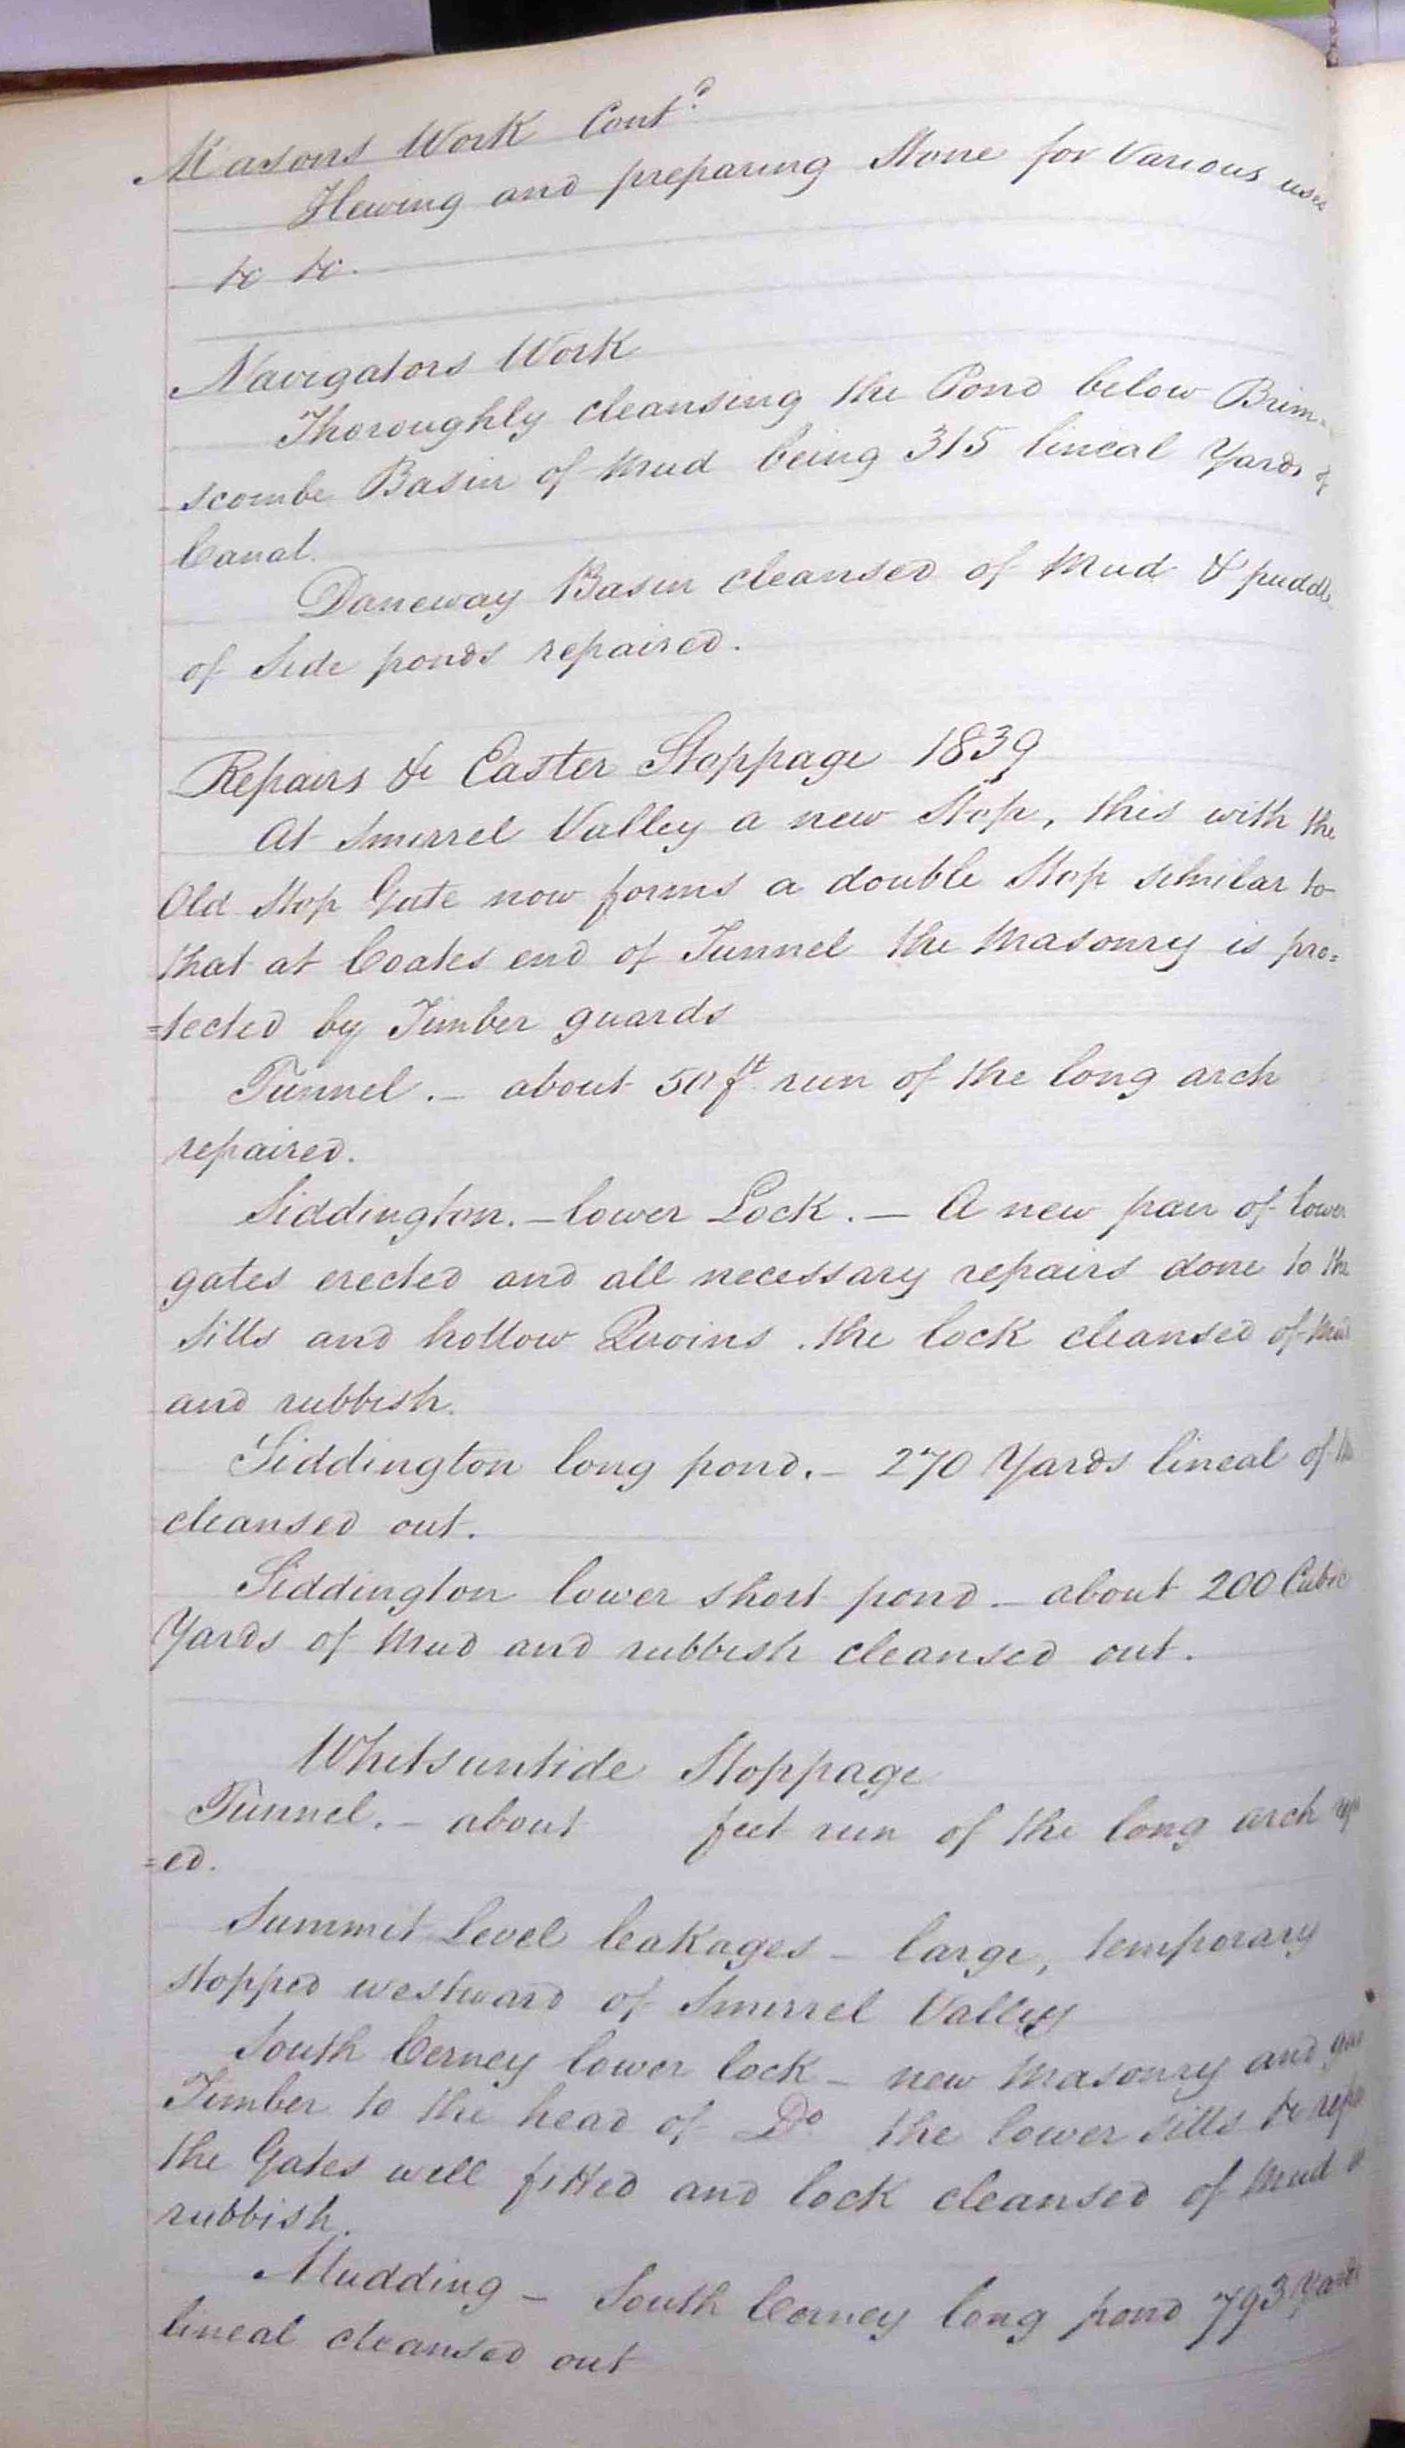 Masons Work Contd.
Hewing and preparing Stone for Various uses
&c &c.
Navigators Work
Thoroughly cleansing the Pond below Brim-
scombe Basin of Mud being 315 lineal Yards of
Canal.
Daneway Basin cleansed of Mud & puddle
of Side ponds repaired.
Repairs &c Easter Stoppage 1839
At Smerrel Valley a new Stop, this with the
Old Stop Gate now forms a double Stop similar to
that at Coates end of Tunnel the Masonry is pro=
=tected by Timber guards
Tunnel. – about 50 ft run of the long arch
repaired.
Siddington. – lower Lock. – A new pair of lower
gates erected and all necessary repairs done to the
Sills and hollow Quoins. the lock cleansed of Mud
and rubbish.
Siddington long pond. – 270 Yards lineal of
cleansed out.
Siddington lower short pond – about 200 Cubic
Yards of Mud and rubbish cleansed out.
Whitsuntide Stoppage
Tunnel. – about feet run of the long arch
=ed.
Summit Level leakages – large, temporary
stopped westward of Smerrel Valley
South Cerney lower lock – new Masonry and
Timber to the head of Do the lower sills &c
the Gates well fitted and lock cleansed of Mud
rubbish.
Mudding – South Cerney long pond 793 Yards
lineal cleansed out